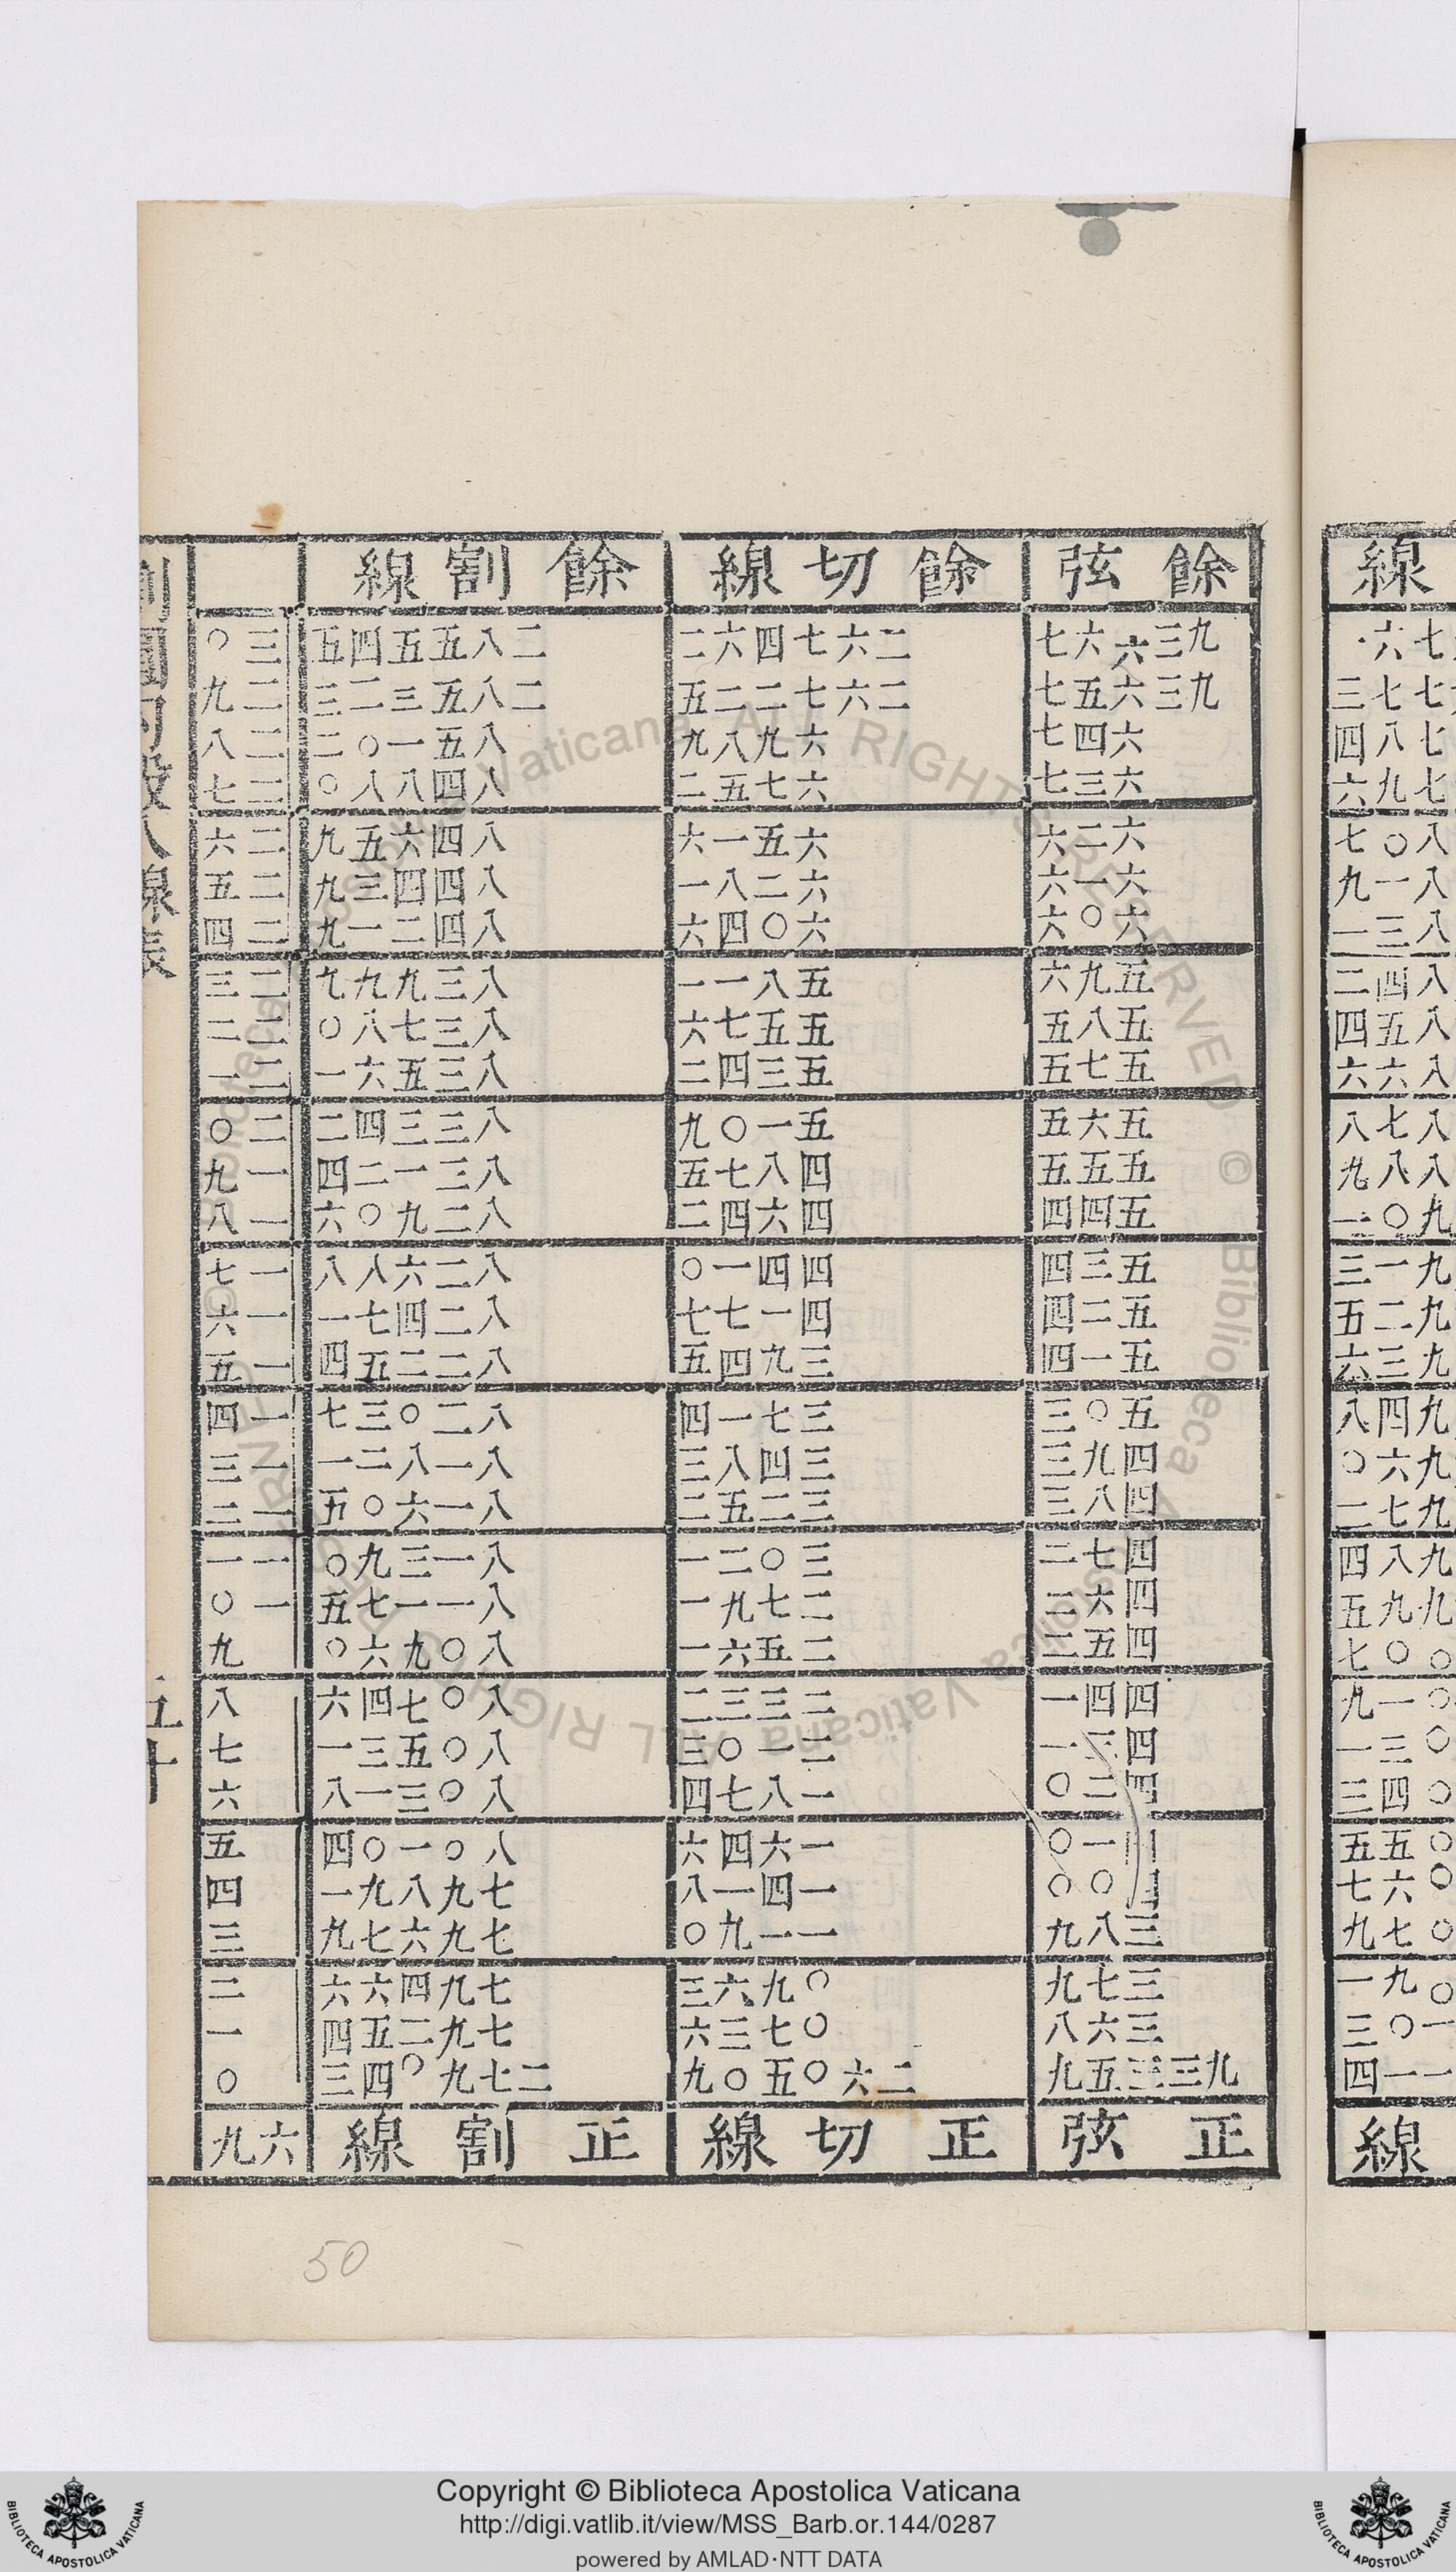 線
七七三
七八四
七九六
八〇七
八一九
八三一
八四二
八五四
八六六
八七八
八八九
九〇一
九一三
九二五
九三六
九四八
九六〇
九七二
九八四
九九五
〇〇七
〇一九
〇三一
〇四三
〇五五
〇六七
〇七九
〇九一
一〇三
一一四
線
餘弦 餘切線 餘割線
九三六六七 二六七四六二 二八五五四五 三〇
九三六五七 二六七二二五 二八五三二三 二九
六四七 六九八九 八五一〇二 二八
六三七 六七五二 八四八八〇 二七
六二六 六五一六 八四六五九 二六
六一六 六二八一 八四四三九 二五
六〇六 六〇四六 八四二一九 二四
五九六 五八一一 八三九九九 二三
五八五 五五七六 八三七八〇 二二
五七五 五三四二 八三五六一 二一
五六五 五一〇九 八三三四二 二〇
五五五 四八七五 八三一二四 一九
五四四 四六四二 八二九〇六 一八
五三四 四四一〇 八二六八八 一七
五二四 四一七七 八二四七一 一六
五一四 三九四五 八二二五四 一五
五〇三 三七一四 八二〇三七 一四
四九三 三四八三 八一八二一 一三
四八三 三二五二 八一六〇五 一二
四七二 三〇二一 八一三九〇 一一
四六二 二七九一 八一一七五 一〇
四五二 二五六一 八〇九六〇 九
四四一 二三三二 八〇七四六 八
四三一 二一〇三 八〇五三一 七
四二〇 一八七四 八〇三一八 六
四一〇 一六四六 八〇一〇四 五
四〇〇 一四一八 七九八九一 四
三八九 一一九〇 七九六七九 三
三七九 〇九六三 七九四六六 二
三六八 〇七三六 七九二五四 一
九三三五九 二六〇五〇九 二七九〇四三 〇
正弦 正切線 正割線 六九
五十
50
© Biblioteca Apostolica Vaticana ALL RIGHTS RESERVED
Copyright © Biblioteca Apostolica Vaticana
http://digi.vatlib.it/view/MSS_Barb.or.144/0287
powered by AMLAD·NTT DATA
BIBLIOTECA APOSTOLICA VATICANA
BIBLIOTECA APOSTOLICA VATICANA